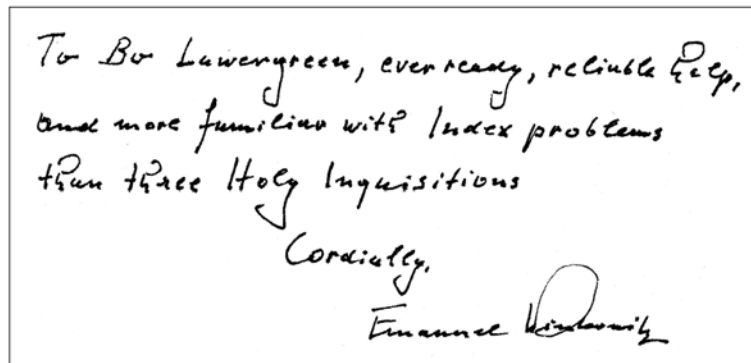 To Bo Lawergreen, ever ready, reliable help,
and more familiar with Index problems
than three Holy Inquisitions
Cordially,
Emanuel Winternitz